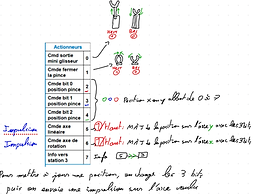 Haut Bas
Actionneurs
Cmd sortie mini glisseur 0
Cmd fermer la pince 1
Haut Bas
Cmd bit 0 position pince 2
Cmd bit 1 position pince 3
Position x en y allant de 0 à 7
Cmd bit 2 position pince 4
Impulsion Cmd axe linéaire 5
Haut: MAJ de la position sur l'axe y avec les 3 bit,
Impulsion Cmd axe de rotation 6
Haut: MAJ de la position sur l'axe x avec les 3 bit,
Info vers station 3 7 Info
Pour mettre à jour une position, on change les 3 bit,
puis on envoie une impulsion sur l'axe voulu